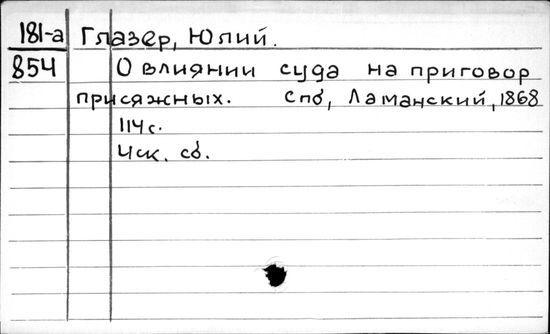 181-а Глазер, Юлий.
854 О влиянии суда на приговор
присяжных. Спб, Ламанский, 1868
114с.
Чск. сб.